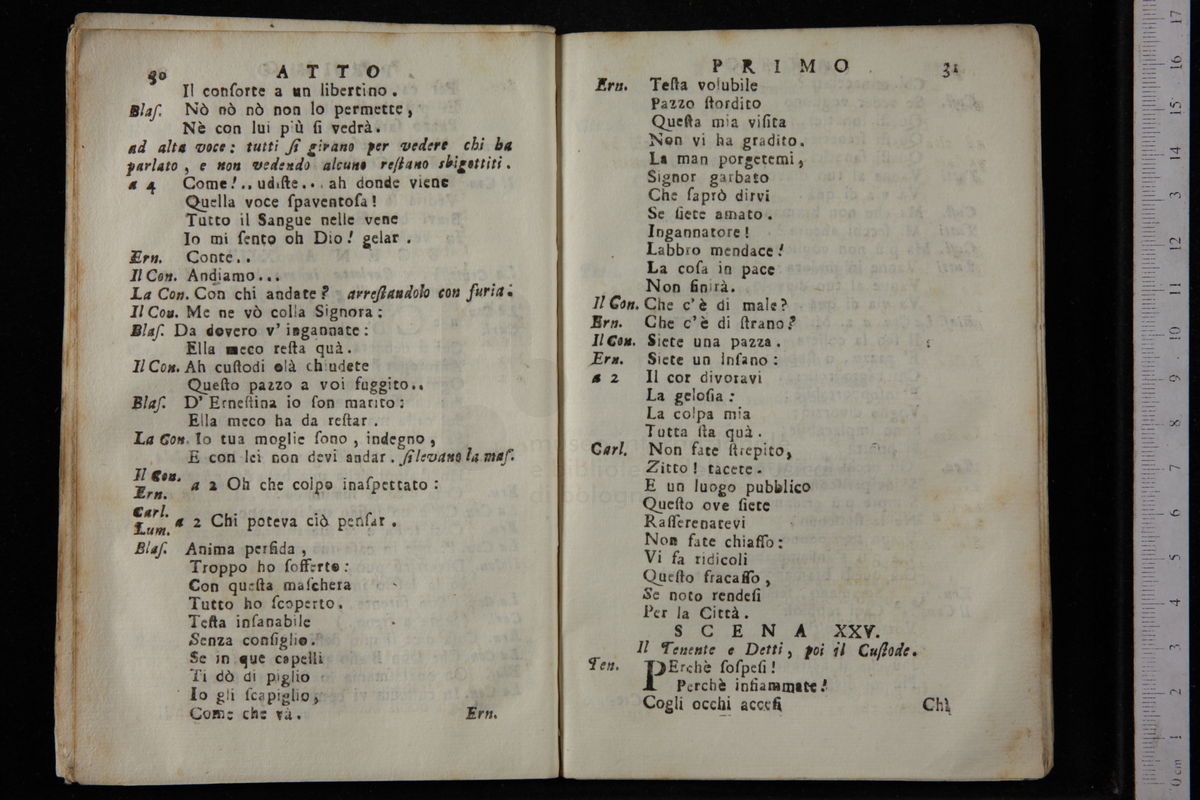 30 ATTO
Il conſorte a un libertino.
Blaſ. Nò nò nò non lo permette,
Nè con lui più ſi vedrà.
ad alta voce: tutti ſi girano per vedere chi ha
parlato, e non vedendo alcuno reſtano sbigottiti.
a 4 Come!.. udiſte... ah donde viene
Quella voce ſpaventoſa!
Tutto il Sangue nelle vene
Io mi ſento oh Dio! gelar.
Ern. Conte..
Il Con. Andiamo...
La Con. Con chi andate? arreſtandolo con furia:
Il Con. Me ne vò colla Signora:
Blaſ. Da dovero v' ingannate:
Ella meco reſta quà.
Il Con. Ah cuſtodi olà chiudete
Queſto pazzo a voi fuggito..
Blaſ. D' Erneſtina io ſon marito:
Ella meco ha da reſtar.
La Con. Io tua moglie ſono, indegno,
E con lei non devi andar. ſi levano la maſ.
Il Con.
Ern. a 2 Oh che colpo inaſpettato:
Carl.
Lum. a 2 Chi poteva ciò penſar.
Blaſ. Anima perfida,
Troppo ho ſofferto:
Con queſta maſchera
Tutto ho ſcoperto.
Teſta inſanabile
Senza conſiglio.
Se in que capelli
Ti dò di piglio
Io gli ſcapiglio,
Come che và. Ern.
PRIMO. 31
Ern. Teſta volubile
Pazzo ſtordito
Queſta mia viſita
Non vi ha gradito.
La man porgetemi,
Signor garbato
Che ſaprò dirvi
Se ſiete amato.
Ingannatore!
Labbro mendace!
La coſa in pace
Non finirà.
Il Con. Che c'è di male?
Ern. Che c'è di ſtrano?
Il Con. Siete una pazza.
Ern. Siete un Inſano:
a 2 Il cor divoravi
La geloſia:
La colpa mia
Tutta ſta quà.
Carl. Non fate ſtrepito,
Zitto! tacete.
E un luogo pubblico
Queſto ove ſiete
Raſſerenatevi
Non fate chiaſſo:
Vi fa ridicoli
Queſto fracaſſo,
Se noto rendeſi
Per la Città.
SCENA XXV.
Il Tenente e Detti, poi il Cuſtode.
Ten. PErchè ſoſpeſi!
Perchè infiammate!
Cogli occhi acceſi Chi